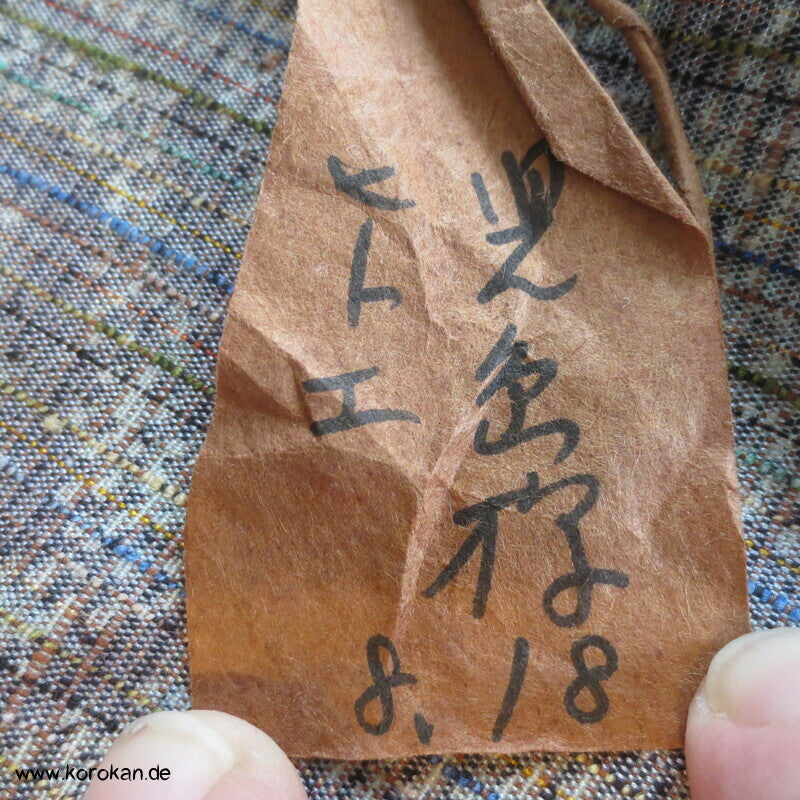 児島様
ヒトエ
8.18
www.korokan.de